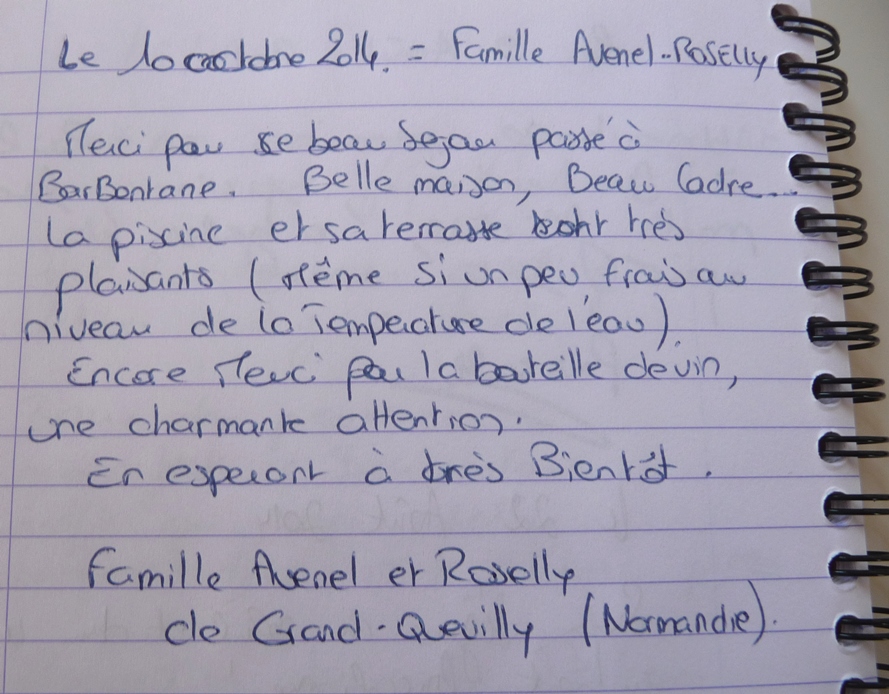 Le 10 octobre 2014. = Famille Avenel-Roselly
Merci pour se beau Sejour passé à
BarBentane. Belle maison, Beau Cadre...
La piscine et sa terrasse sont très
plaisants (Même si un peu frais au
niveau de la Température de l'eau)
Encore Merci pour la bouteille de vin,
une charmante attention.
En esperant à très Bientôt.
Famille Avenel et Roselly
de Grand-Quevilly (Normandie).